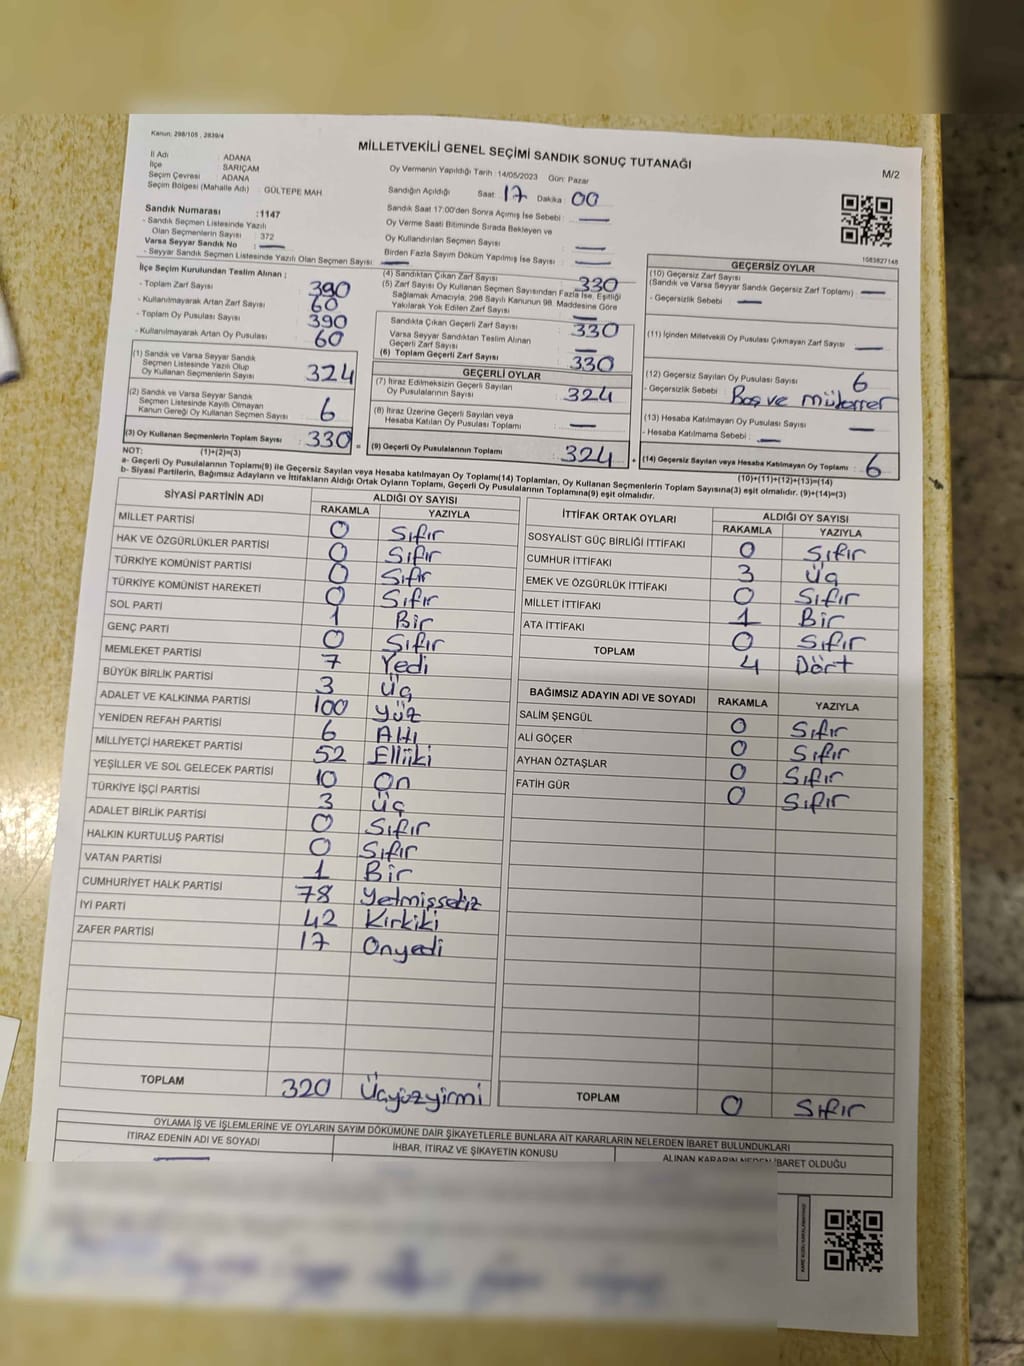 Kanun; 298/105 , 2839/4
MİLLETVEKİLİ GENEL SEÇİMİ SANDIK SONUÇ TUTANAĞI
M/2
İl Adı : ADANA
İlçe : SARIÇAM
Seçim Çevresi : ADANA
Seçim Bölgesi (Mahalle Adı) : GÜLTEPE MAH
Oy Vermenin Yapıldığı Tarih :14/05/2023 Gün: Pazar
Sandığın Açıldığı Saat : 17 Dakika : 00
Sandık Saat 17:00'den Sonra Açımış İse Sebebi : —
Oy Verme Saati Bitiminde Sırada Bekleyen ve
Oy Kullandırılan Seçmen Sayısı —
Birden Fazla Sayım Döküm Yapılmış İse Sayısı : —
Sandık Numarası :1147
- Sandık Seçmen Listesinde Yazılı
Olan Seçmenlerin Sayısı : 372
Varsa Seyyar Sandık No : —
- Seyyar Sandık Seçmen Listesinde Yazılı Olan Seçmen Sayısı: —
1083827148
İlçe Seçim Kurulundan Teslim Alınan ;
- Toplam Zarf Sayısı : 390
- Kullanılmayarak Artan Zarf Sayısı : 60
- Toplam Oy Pusulası Sayısı : 390
- Kullanılmayarak Artan Oy Pusulası : 60
(1) Sandık ve Varsa Seyyar Sandık
Seçmen Listesinde Yazılı Olup
Oy Kullanan Seçmenlerin Sayısı : 324
(2) Sandık ve Varsa Seyyar Sandık
Seçmen Listesinde Kayıtlı Olmayan
Kanun Gereği Oy Kullanan Seçmen Sayısı : 6
(3) Oy Kullanan Seçmenlerin Toplam Sayısı : 330
(1)+(2)=(3)
(4) Sandıktan Çıkan Zarf Sayısı : 330
(5) Zarf Sayısı Oy Kullanan Seçmen Sayısından Fazla İse, Eşitliği
Sağlamak Amacıyla, 298 Sayılı Kanunun 98. Maddesine Göre
Yakılarak Yok Edilen Zarf Sayısı : —
Sandıkta Çıkan Geçerli Zarf Sayısı : 330
Varsa Seyyar Sandıktan Teslim Alınan
Geçerli Zarf Sayısı : —
(6) Toplam Geçerli Zarf Sayısı : 330
GEÇERLİ OYLAR
(7) İtiraz Edilmeksizin Geçerli Sayılan
Oy Pusulasının Sayısı : 324
(8) İtiraz Üzerine Geçerli Sayılan veya
Hesaba Katılan Oy Pusulası Toplamı : —
= (9) Geçerli Oy Pusulalarının Toplamı : 324
GEÇERSİZ OYLAR
(10) Geçersiz Zarf Sayısı
(Sandık ve Varsa Seyyar Sandık Geçersiz Zarf Toplamı) : —
- Geçersizlik Sebebi : —
(11) İçinden Milletvekili Oy Pusulası Çıkmayan Zarf Sayısı : —
(12) Geçersiz Sayılan Oy Pusulası Sayısı : 6
- Geçersizlik Sebebi : Boş ve mükerrer
(13) Hesaba Katılmayan Oy Pusulası Sayısı : —
- Hesaba Katılmama Sebebi : —
+ (14) Geçersiz Sayılan veya Hesaba Katılmayan Oy Toplamı : 6
(10)+(11)+(12)+(13)=(14)
NOT:
a- Geçerli Oy Pusulalarının Toplamı(9) ile Geçersiz Sayılan veya Hesaba katılmayan Oy Toplamı(14) Toplamları, Oy Kullanan Seçmenlerin Toplam Sayısına(3) eşit olmalıdır. (9)+(14)=(3)
b- Siyasi Partilerin, Bağımsız Adayların ve İttifakların Aldığı Oyların Toplamı, Geçerli Oy Pusulalarının Toplamına(9) eşit olmalıdır.
SİYASİ PARTİNİN ADI ALDIĞI OY SAYISI
RAKAMLA YAZIYLA
MİLLET PARTİSİ 0 Sıfır
HAK VE ÖZGÜRLÜKLER PARTİSİ 0 Sıfır
TÜRKİYE KOMÜNİST PARTİSİ 0 Sıfır
TÜRKİYE KOMÜNİST HAREKETİ 0 Sıfır
SOL PARTİ 1 Bir
GENÇ PARTİ 0 Sıfır
MEMLEKET PARTİSİ 7 Yedi
BÜYÜK BİRLİK PARTİSİ 3 Üç
ADALET VE KALKINMA PARTİSİ 100 yüz
YENİDEN REFAH PARTİSİ 6 Altı
MİLLİYETÇİ HAREKET PARTİSİ 52 Elliiki
YEŞİLLER VE SOL GELECEK PARTİSİ 10 On
TÜRKİYE İŞÇİ PARTİSİ 3 Üç
ADALET BİRLİK PARTİSİ 0 Sıfır
HALKIN KURTULUŞ PARTİSİ 0 Sıfır
VATAN PARTİSİ 1 Bir
CUMHURİYET HALK PARTİSİ 78 Yetmişsekiz
İYİ PARTİ 42 Kırkiki
ZAFER PARTİSİ 17 Onyedi
TOPLAM 320 Üçyüzyirmi
İTTİFAK ORTAK OYLARI ALDIĞI OY SAYISI
RAKAMLA YAZIYLA
SOSYALİST GÜÇ BİRLİĞİ İTTİFAKI 0 Sıfır
CUMHUR İTTİFAKI 3 Üç
EMEK VE ÖZGÜRLÜK İTTİFAKI 0 Sıfır
MİLLET İTTİFAKI 1 Bir
ATA İTTİFAKI 0 Sıfır
TOPLAM 4 Dört
BAĞIMSIZ ADAYIN ADI VE SOYADI RAKAMLA YAZIYLA
SALİM ŞENGÜL 0 Sıfır
ALİ GÖÇER 0 Sıfır
AYHAN ÖZTAŞLAR 0 Sıfır
FATİH GÜR 0 Sıfır
TOPLAM 0 Sıfır
OYLAMA İŞ VE İŞLEMLERİNE VE OYLARIN SAYIM DÖKÜMÜNE DAİR ŞİKAYETLERLE BUNLARA AİT KARARLARIN NELERDEN İBARET BULUNDUKLARI
İTİRAZ EDENİN ADI VE SOYADI İHBAR, İTİRAZ VE ŞİKAYETİN KONUSU ALINAN KARARIN NEDEN İBARET OLDUĞU
—